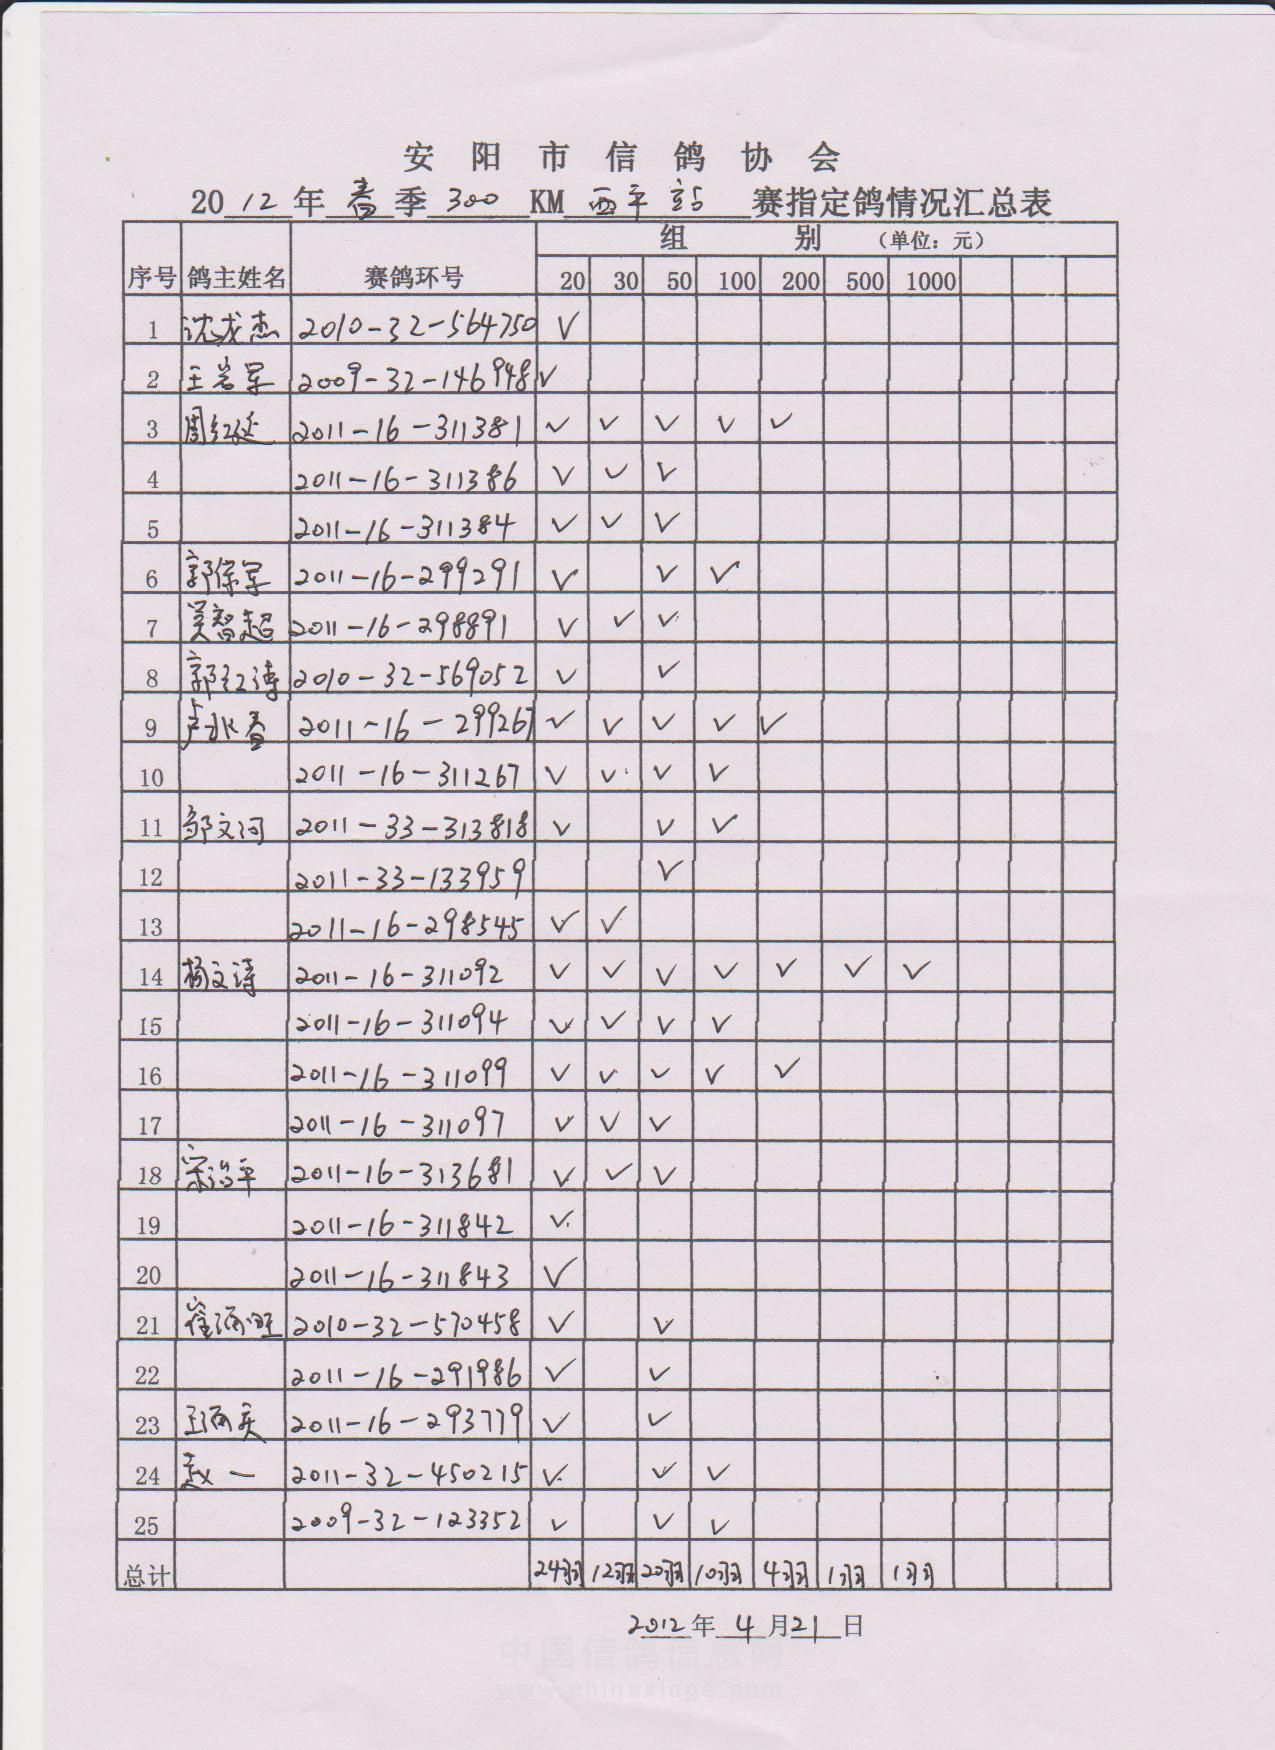 安阳市信鸽协会
2012年春季300KM西平站赛指定鸽情况汇总表
序号 鸽主姓名 赛鸽环号 组别 (单位:元)
20 30 50 100 200 500 1000
1 沈龙杰 2010-32-564750 ✓
2 王岩军 2009-32-146948 ✓
3 周红延 2011-16-311381 ✓ ✓ ✓ ✓ ✓
4 2011-16-311386 ✓ ✓ ✓
5 2011-16-311384 ✓ ✓ ✓
6 郭保军 2011-16-299291 ✓ ✓ ✓
7 吴智超 2011-16-298891 ✓ ✓ ✓
8 郭红涛 2010-32-569052 ✓ ✓
9 卢水春 2011-16-299267 ✓ ✓ ✓ ✓ ✓
10 2011-16-311267 ✓ ✓ ✓ ✓
11 邹文河 2011-33-313818 ✓ ✓ ✓
12 2011-33-133959 ✓
13 2011-16-298545 ✓ ✓
14 杨文涛 2011-16-311092 ✓ ✓ ✓ ✓ ✓ ✓ ✓
15 2011-16-311094 ✓ ✓ ✓ ✓
16 2011-16-311099 ✓ ✓ ✓ ✓ ✓
17 2011-16-311097 ✓ ✓ ✓
18 宋治平 2011-16-313681 ✓ ✓ ✓
19 2011-16-311842 ✓
20 2011-16-311843 ✓
21 2010-32-570458 ✓ ✓
22 2011-16-291986 ✓ ✓
23 2011-16-293779 ✓ ✓
24 赵一 2011-32-450215 ✓ ✓ ✓
25 2009-32-123352 ✓ ✓ ✓
总计 24羽 12羽 20羽 10羽 4羽 1羽 1羽
2012年4月21日
中国信鸽信息网
www.chinaxinge.com